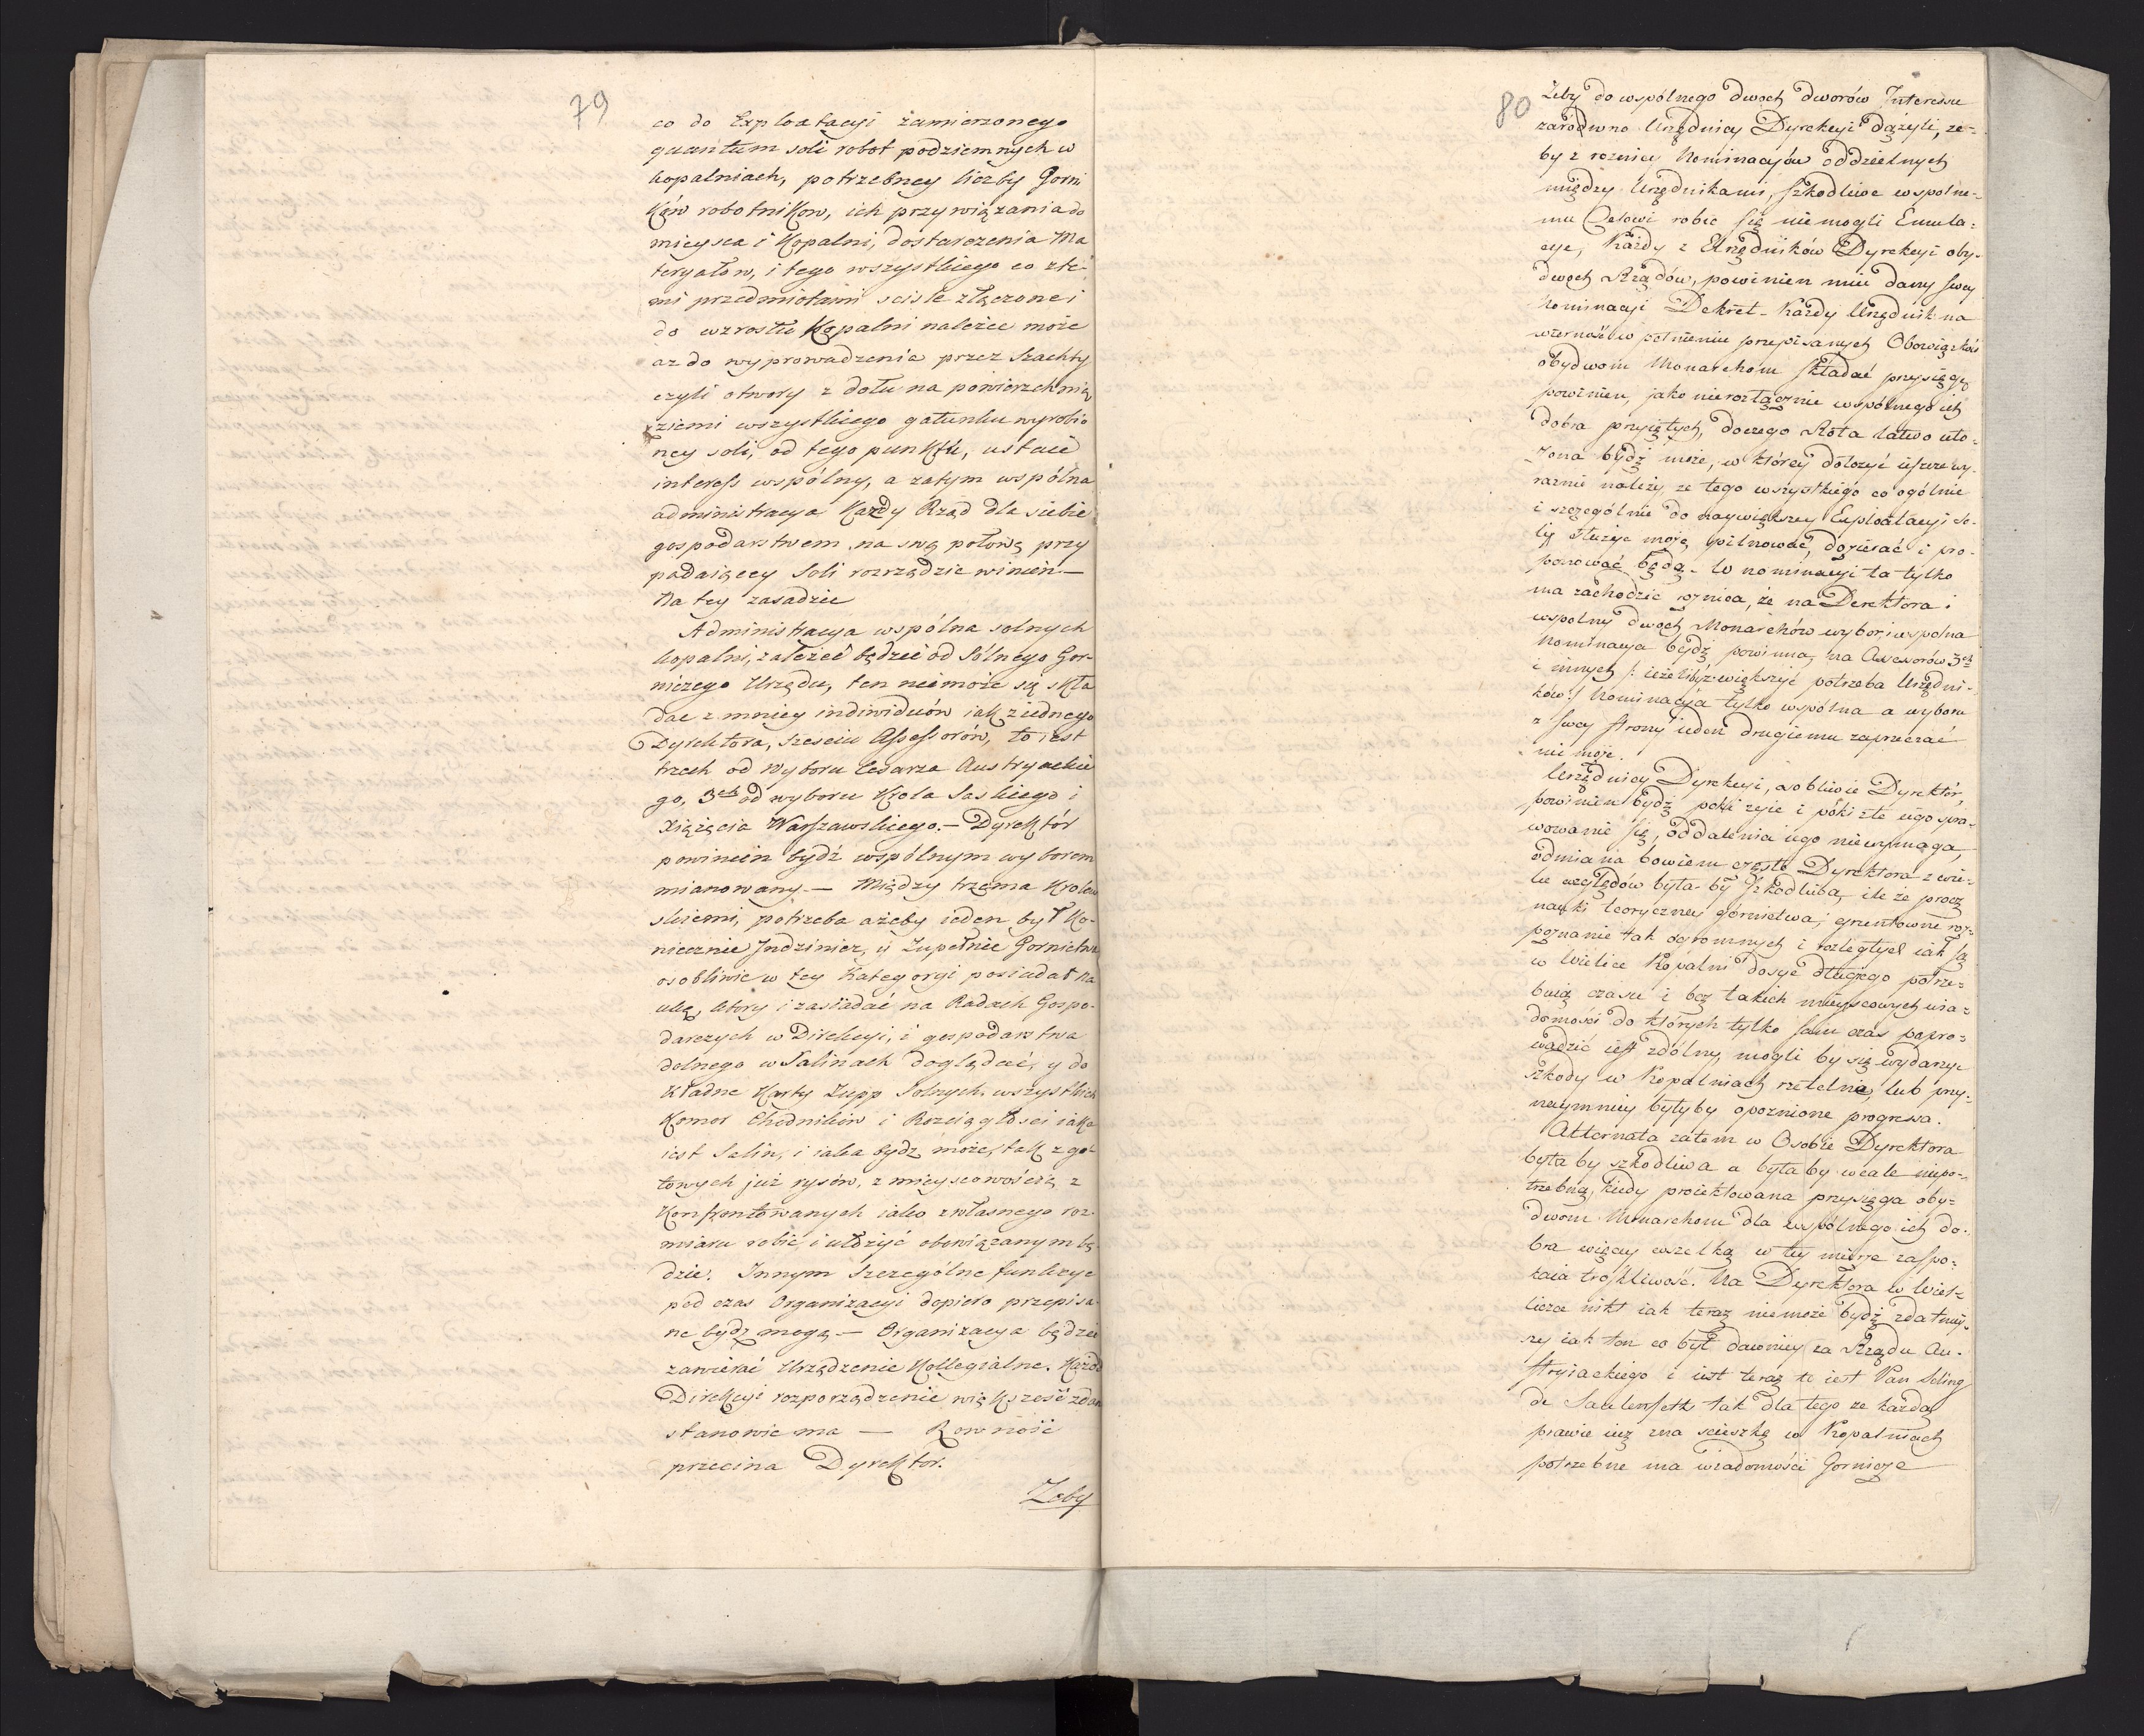 79
co do Exploatacyi zamierzonego
quantum soli robot podziemnych w
kopalniach, potrzebney liczby Gorni
Ków robotnikow, ich przywiązania do
mieysca i Kopalni, dostarczenia Ma
teryałow, i tego wszystkiego co zte-
mi przedmiotami sciśle złączone i
do wzrostu Kopalni należec może
az do wyprowadzenia przez Szachty
czyli otwory z dołu na powierzchnią
ziemi wszystkiego gatunku wyrobio
ney soli, od tego punktu, ustaie
interess wspólny, a zatym wspólna
administracya Każdy Rząd dla siebie
gospodarstwem na swą połowę przy
padaiącey Soli rozrządzic winien —
Na tey zasadzie
Administracya wspólna solnych
kopalni, zależeć będzie od Sólnego Gor-
niczego Urzędu, ten nie może się skła
dac z mniey individuów iak ziednego
Dyrektora, szesciu Assessorów, to iest
trzech od wyboru Cesarza Austryackie
go, 3ch od wyboru Krola Saskiego i
Xiążęcia Warszawskiego. — Dyrektór
powinien bydź wspólnym wyborem
mianowany. — Między trzema Krolew
skiemi, potrzeba ażeby ieden był Ko-
niecznie Indzinier, y Zupełnie Gornictwa
osobliwie w tey Kategoryi posiadał na
ukę, ktory i zasiadać na Radach Gospo-
darczych w Direkcyi, i gospodarstwa
dolnego w Salinach doglądać, y do
kładne Karty Zupp Solnych wszystkich
Komor Chodników i Rozciągłości iaka
iest Salin, i iaka bydz może, tak z go-
towych już rysów, z mieyscowością z
Konfrontowanych iako z własnego roz-
miaru robić i ułożyć obowiązanym bę
dzie. Innym szczególne funkcye
pod czas Organizacyi dopiero przepisa-
ne bydz mogą — Organizacya będzie
zawierać Urządzenie Kollegialne. Każde
Direkcyi rozporządzenie większość zdan
stanowic ma — Rowność
przecina Dyrektor.
Zeby
80
Żeby do wspólnego dwoch dworów Interessu
zarówno Urzędnicy Dyrekcyi dążyli, ze-
by z roznicy Nominacyów oddzielnych
między Urzędnikami, szkodliwe wspolne-
mu Celowi robic się nie mogli Emula-
cye, Każdy z Urzędników Dyrekcyi oby-
dwoch Rządów, powinien mieć dany swey
Nominacyi Dekret — Każdy Urzędnik na
wierność w pełnieniu przepisanych Obowiązków
obydwom Monarchom składać przysięgę
powinien, jako nierozłącznie wspólnego ich
dobra przyiętych, doczego Rota łatwo uło-
żona bydź może, w którey dołożyć ieszcze wy-
raznie należy, ze tego wszystkiego co ogólnie
i szczególnie do naywiększey Exploatacyi So-
li służyc może, pilnować, dozierać i pro-
ponować będą — W nominacyi ta tylko
ma zachodzic roznica, że na Derektora i
wspolny dwoch Monarchów wybor, i wspolna
Nominacya bydz powinna, na Assessorów 3ch
i innych /: ieżeliby zwiększyć potrzeba Urzędni-
ków :/ Nominacya tylko wspólna a wyboru
z swey strony ieden drugiemu zaprzeczać
nie może.
Urzędnicy Dyrekcyi, osobliwie Dyrektór,
powinien bydź poki zyie i póki złe iego spra-
wowanie się, oddalenia iego niewymaga,
odmiana bowiem częsta Dyrektora z wie-
lu względów była-by szkodliwa, ile że procz
nauki teoryczney górnictwa, gruntowne roz-
poznanie tak ogromnych i rozległych iak są
w Wielice Kopalni dosyć długiego potrze-
buią czasu i bez takich mieyscowych wia-
domości do których tylko sam czas popro-
wadzić iest zdólny, mogli by się wydarzyc
szkody w Kopalniach rzetelne, lub przy-
naymniey byłyby opoznione progressa.
Alternata zatem w Osobie Dyrektora
była by szkodliwa a była by wcale niepo-
trzebną, kiedy proiektowana przysięga oby-
dwom Monarchom dla wspólnego ich do-
bra więcey wszelką w tey mierze zaspo-
kaia troskliwość. Na Dyrektora w Wiel-
liczce nikt iak teraz nie może bydź zdatniey-
szy iak ten co był dawniey za Rządu Au-
stryiackiego i iest teraz to iest Pan Seling
de Saulenfels tak dla tego ze każdą
prawie iuz zna scieszkę w Kopalniach
potrzebne ma wiadomości Gornicze